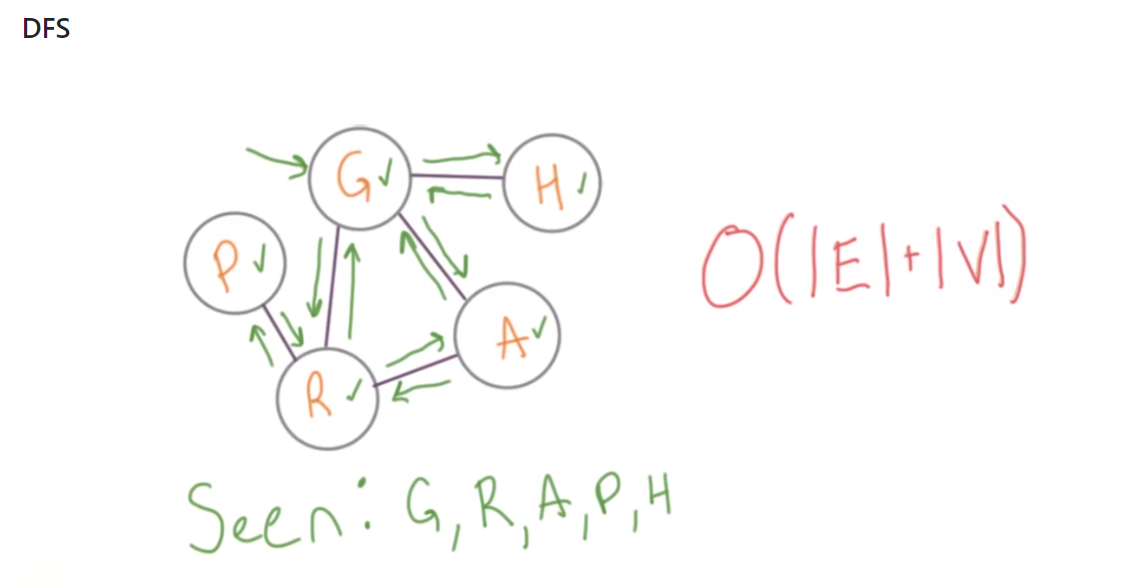 DFS
G✓
H✓
P✓
O(|E|+|V|)
A✓
R✓
Seen: G, R, A, P, H